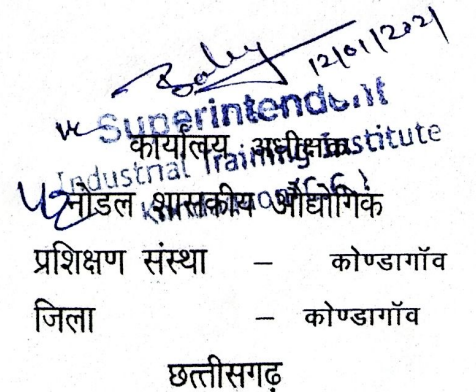 12/01/2021
Superintendent
Industrial Training Institute
कार्यालय अधीक्षक
नोडल शासकीय औद्योगिक
प्रशिक्षण संस्था – कोण्डागॉव
जिला – कोण्डागॉव
छत्तीसगढ़